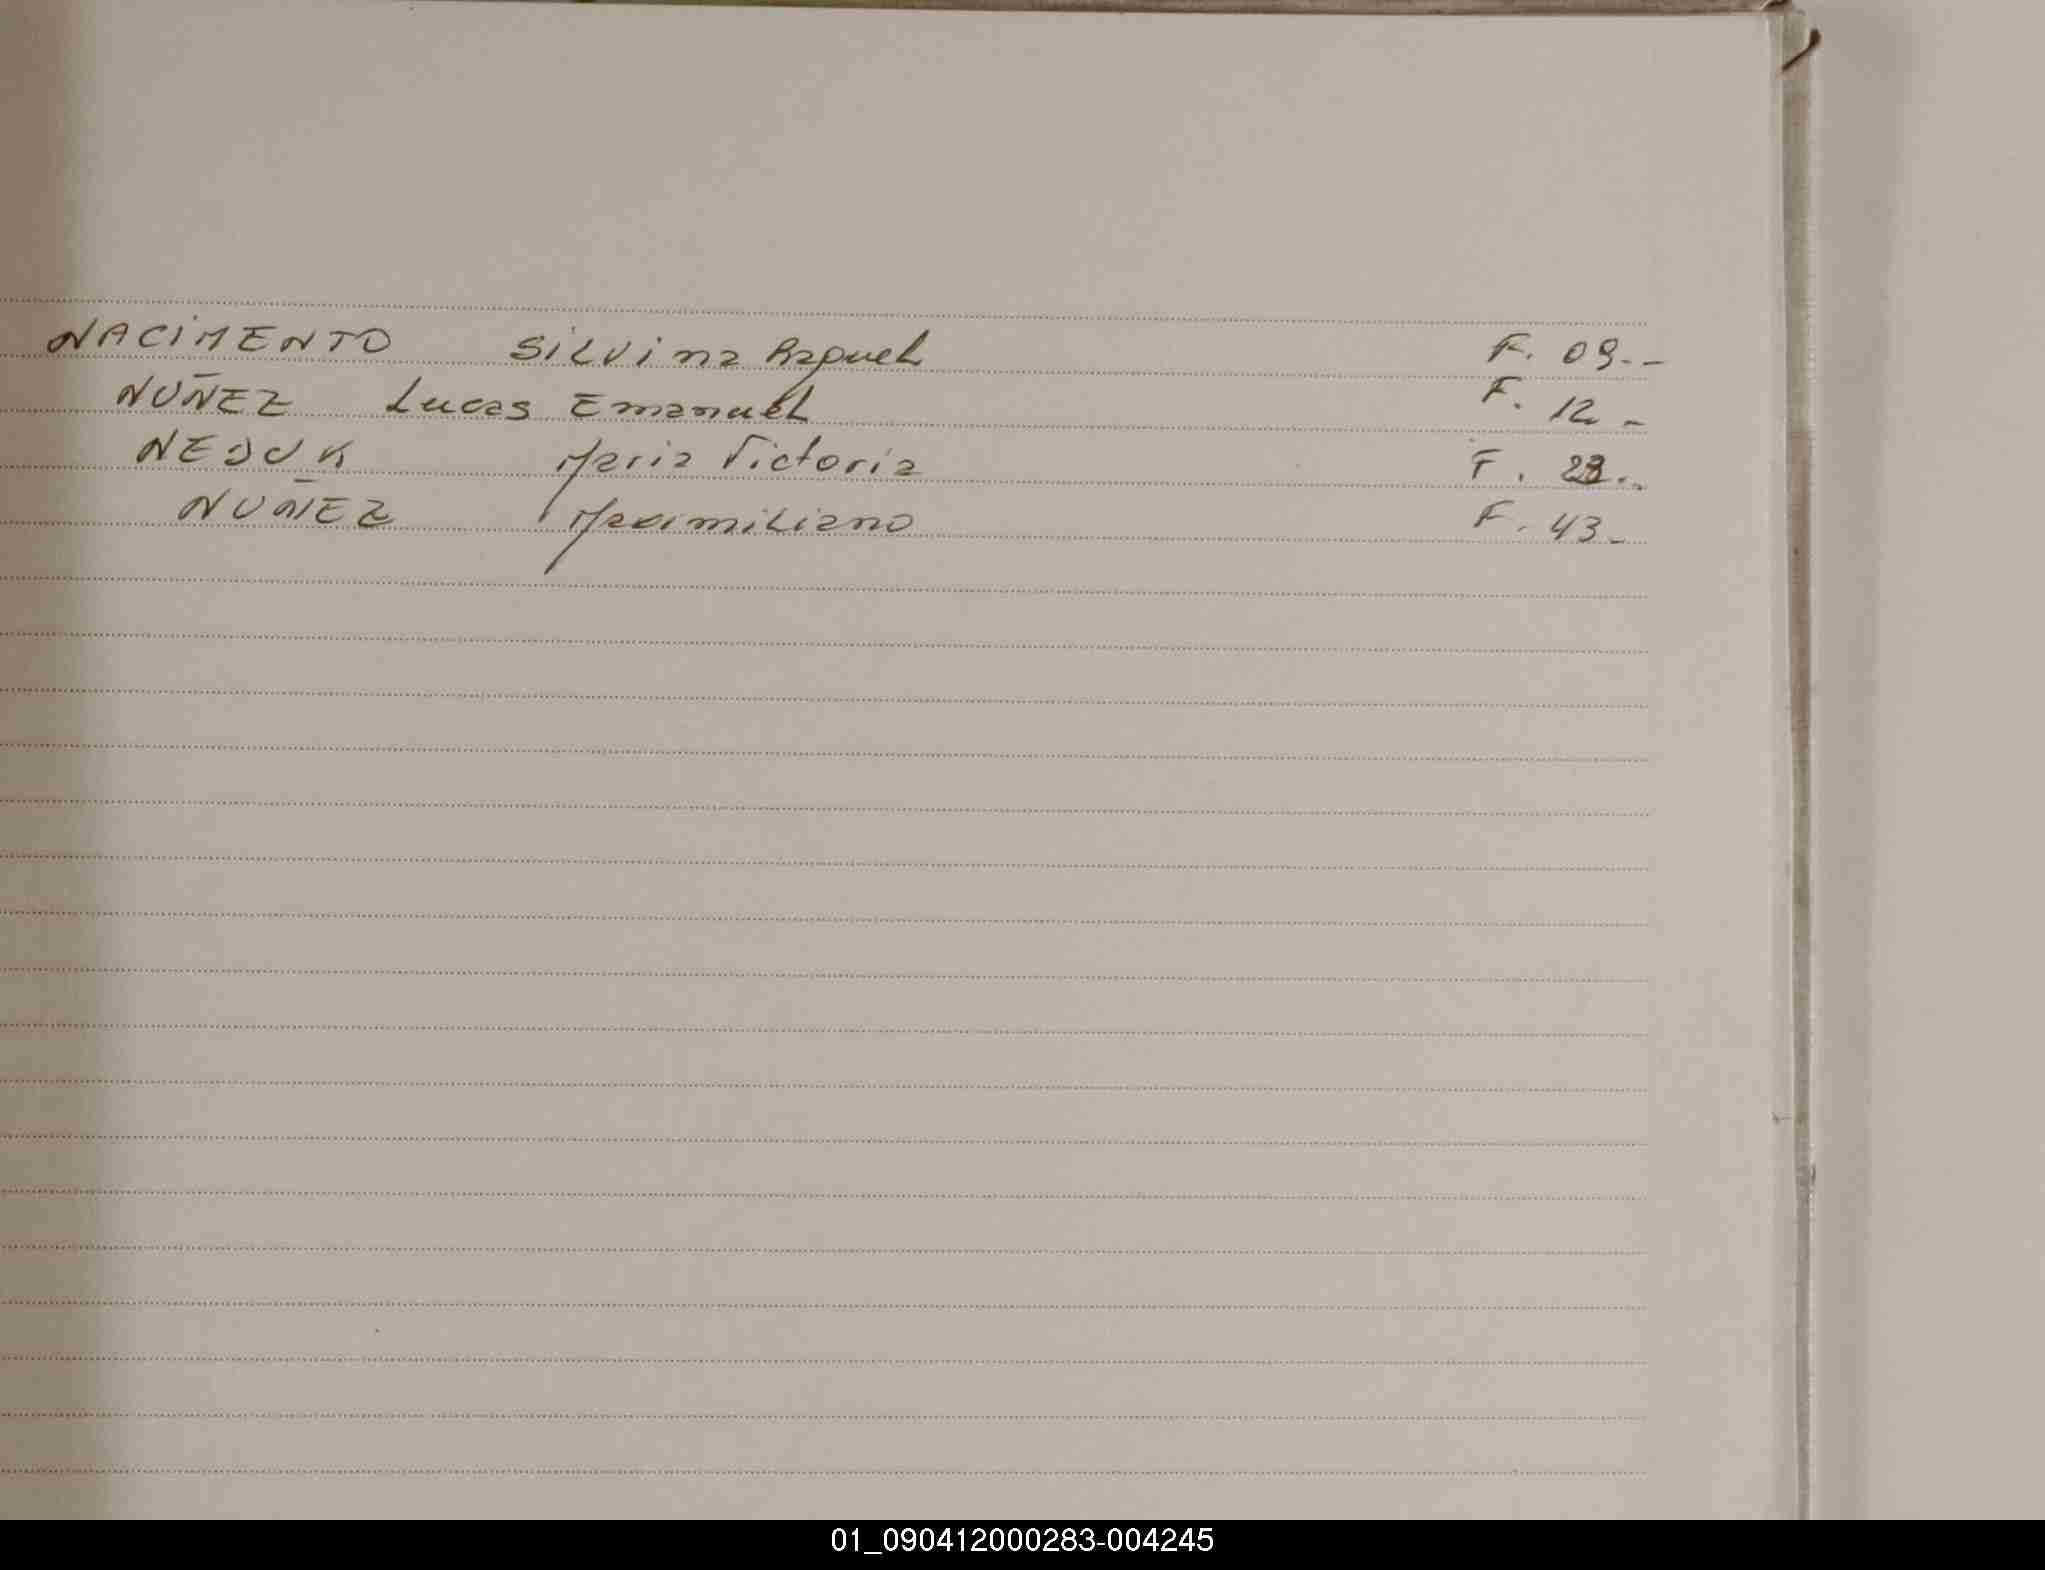 NACIMENTO Silvina Raquel F. 09.-
NUÑEZ Lucas Emanuel F. 12 -
Maria Victoria F. 23.-
NUÑEZ Maximiliano F. 43.-
01_090412000283-004245